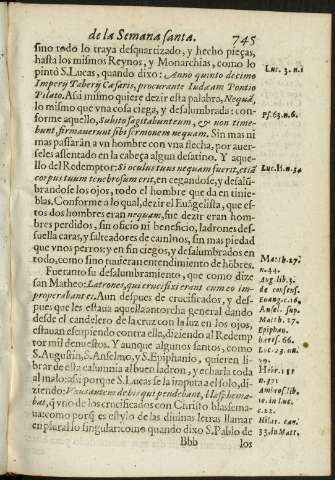 de la Semana santa. 745
sino todo lo traya desquartizado, y hecho pieças,
hasta los mismos Reynos, y Monarchias, como lo
pintò S. Lucas, quando dixo: Anno quinto decimo
Imperij Tiberij Cæsaris, procurante Iudæam Pontio
Pilato. Assi mismo quiere dezir esta palabra, Nequã,
lo mismo que vna cosa ciega, y desalumbrada: con-
forme aquello, Subito sagitabunt eum, & non time-
bunt, firmauerunt sibi sermonem nequam. Sin mas ni
mas passaràn a vn hombre con vna flecha, por auer-
seles assentado en la cabeça algun desatino. Y aque-
llo del Redemptor: Si oculus tuus nequam fuerit, etiã
corpus tuum tenebrosum erit, en cegandose, y desalũ-
brandose los ojos, todo el hombre que da en tinie-
blas. Conforme a lo qual, dezir el Euãgelista, que es-
tos dos hombres eran nequam, fue dezir eran hom-
bres perdidos, sin oficio ni beneficio, ladrones des-
suella caras, y salteadores de caminos, sin mas piedad
que vnos perros: y en fin ciegos, y desalumbrados en
todo, como sino tuuierã entendimiento de hõbres.
Fueranto su desalumbramiento, que como dize
san Matheo: Latrones, qui crucifixi erant cum eo im-
properabant ei. Aun despues de crucificados, y des-
pues que les estaua aquella antorcha general dando
desde el candelero de la cruz con la luz en los ojos,
estauan escupiendo contra ella, diziendo al Redemp
tor mil denuestos. Y aunque algunos santos, como
S. Augustin, S. Anselmo, y S. Epiphanio, quieren li-
brar de esta calumnia al buen ladron, y echarla toda
al malo: assi porque S. Lucas se la imputa a el solo, di-
ziendo: Vnus autem de his qui pendebant, blasphema-
bat, q̃ vno de los crucificados con Christo blasfema-
ua: como porq̃ es estylo de las diuinas letras llamar
en plural lo singular: como quando dixo S. Pablo de
Bbb los
Luc. 3. n. 1
Ps. 63. n. 6.
Luc. 11. n. 34
Matth. 27.
n. 44.
Aug. lib. 3.
de consens.
Euang. c. 16.
Ansel. sup.
Matth. 27.
Epiphan.
hæres. 66.
Luc. 23. nu.
39.
Ambros. lib.
10. in Luc.
c. 22.
Hilar. can.
33. in Matt.